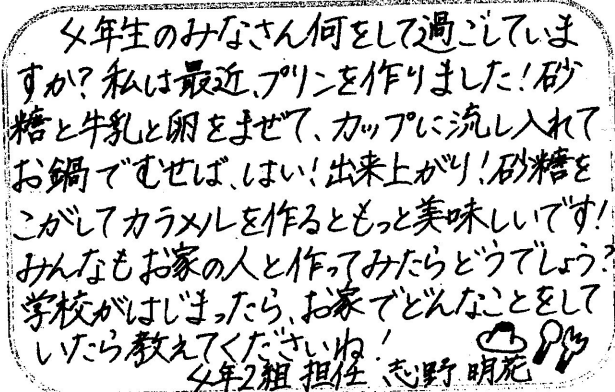 4年生のみなさん何をして過ごしていま
すか？私は最近、プリンを作りました！砂
糖と牛乳と卵をまぜて、カップに流し入れて
お鍋でむせば、はい！出来上がり！砂糖を
こがしてカラメルを作るともっと美味しいです！
みんなもお家の人と作ってみたらどうでしょう？
学校がはじまったら、お家でどんなことをして
いたら教えてくださいね！
4年2組 担任 志野 明花